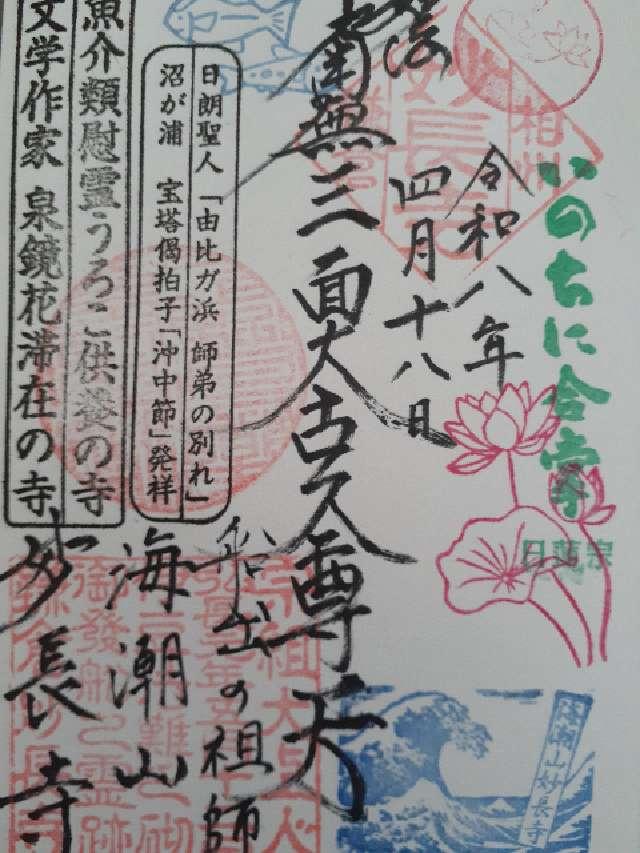 いのちに合掌
日蓮宗
相州
妙長寺
令和八年
四月十八日
南無三面大古久尊天
船出の祖師
海潮山
妙長寺
日朗聖人「由比ガ浜 師弟の別れ」
沼が浦 宝塔偈拍子「沖中節」発祥
魚介類慰霊うろこ供養の寺
文学作家 泉鏡花滞在の寺
海潮山妙長寺